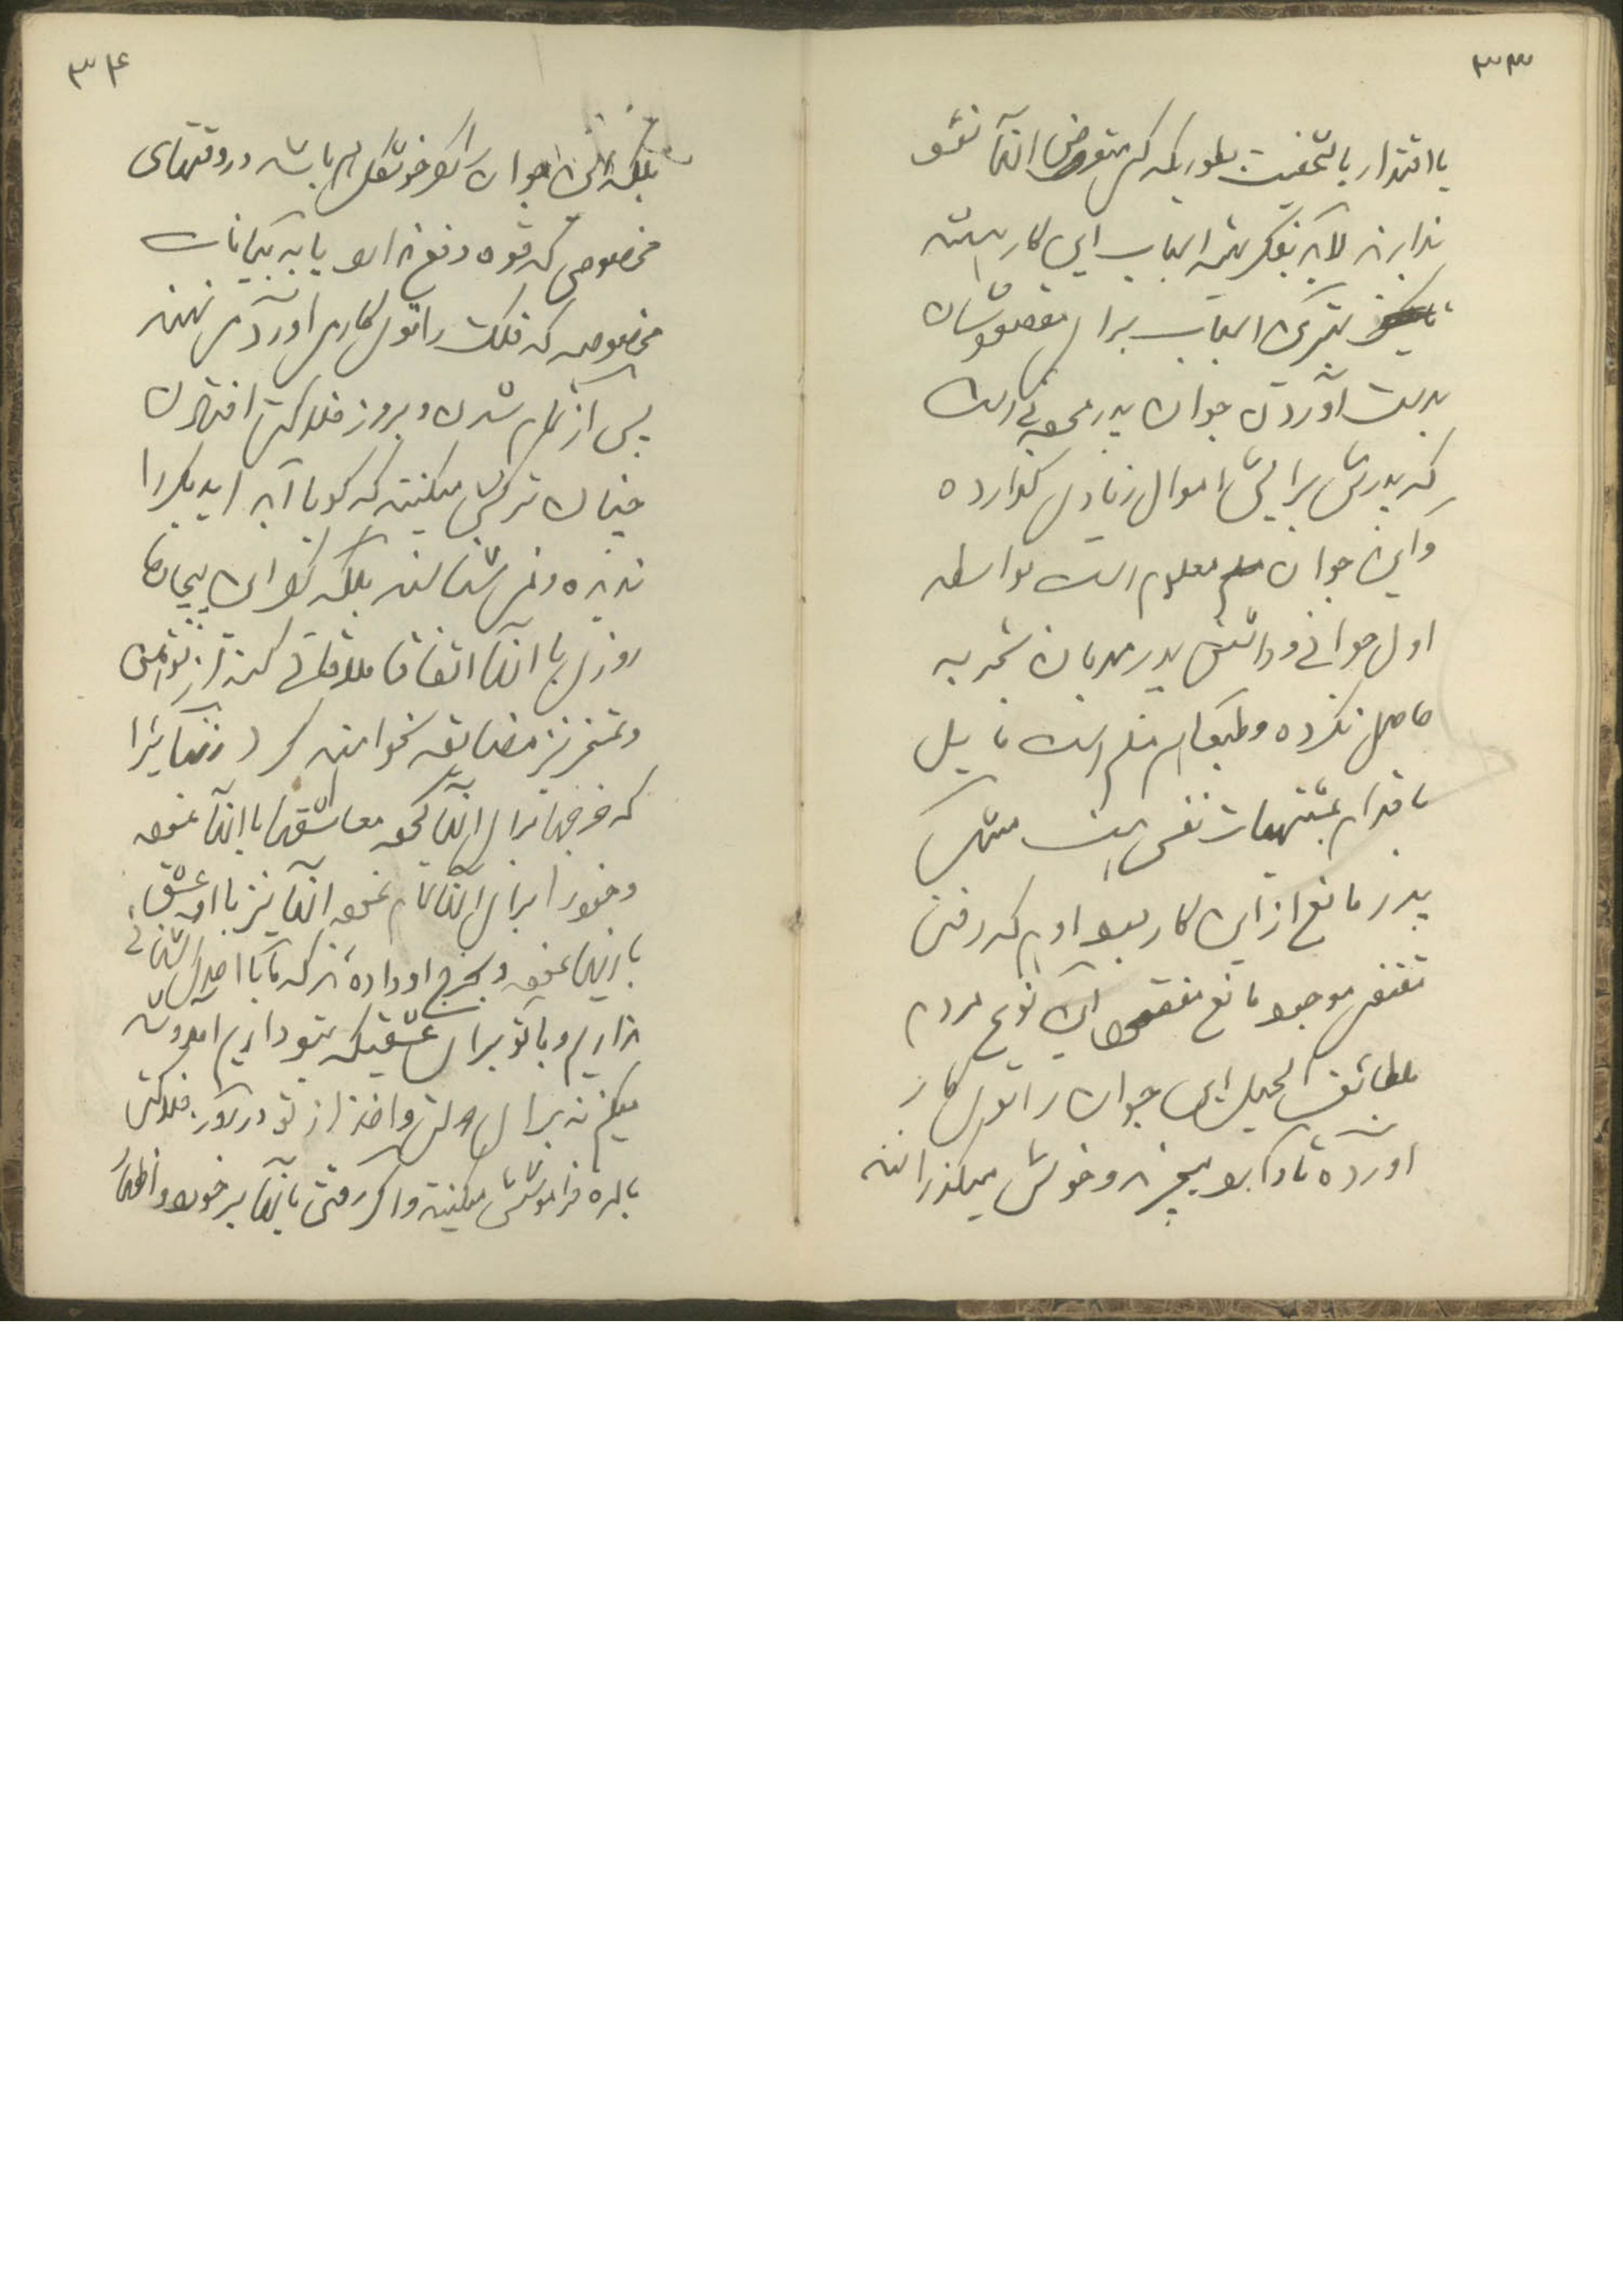 ۳۳
یا اقتدار یا شخصیت بطوریکه کسی متعرض آنها نشود
ندارند لابد بفکر تهیه اسباب این کار هستند
بهترین اسباب برای مقصودشان
بدست آوردن جوان پدر مرده است
که پدرش برایش اموال زیادی گذارده
و این جوان معلوم است بواسطه
اول جوانی و داشتن پدر مهربان تجربه
حاصل نکرده و طبعاً هم مسلم است مایل
باقدام بمشتهیات نفس است
پدر مانع از این کار بود او هم که رفت
مقتضی موجود مانع مفقود این نوع مردم
بلطائف الحیل این جوان را توی کار
آورده تا دارد میچرند و خوش میگذرانند
۳۴
بلکه این جوان اگر خوشگل هم باشد در وقتهای
مخصوصی که قوه دفع ندارد یا به بیانات
مخصوصه که فلک را توی کار می آورد می نهند
پس از تمام شدن و بروز فلاکت افتادن
چنان ترکش میکنند که گویا ابداً یکدیگر را
ندیده و نمی شناسند بلکه اگر این بیچاره
روزی با آنها اتفاقاً ملاقاتی کند از توهین
و تمسخر نیز مضایقه نخواهند کرد
که خرجها برای آنها کرده معاشقه ها با آنها نموده
و خود را برای آنها تمام نموده آنها نیز با او عشق
بازیها نموده و بخرج او داده اند که ما با احدی آشنائی
نداریم و با تو برای عشقیکه بتو داریم آمد و شد
میکنیم نه برای دولتت و اخذ از تو در روز فلاکت
بالمره فراموشش میکنند و اگر وقتی بآنها برخورد و اظهار